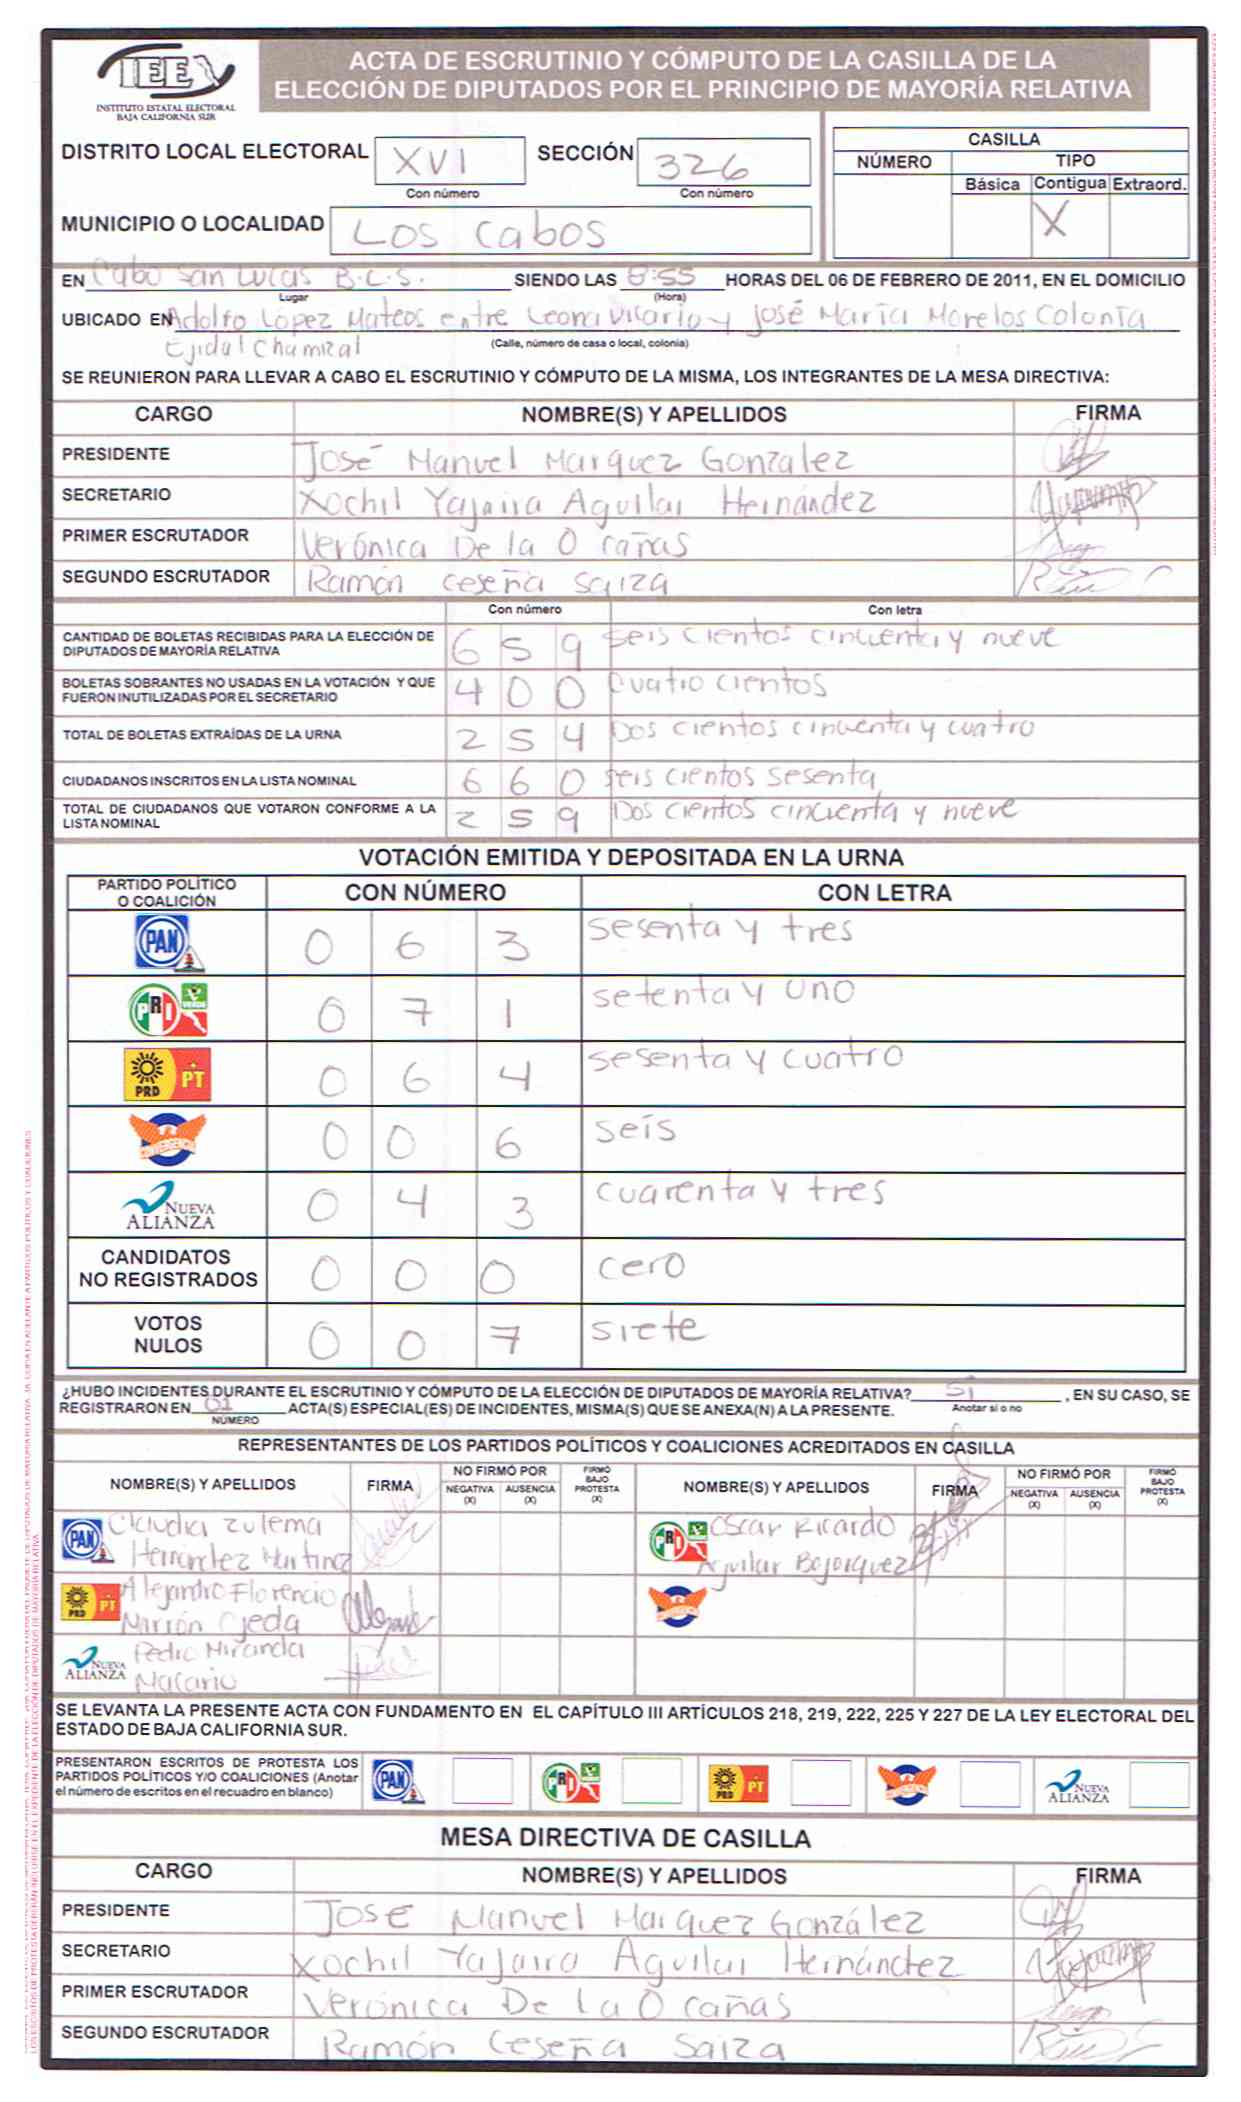 IEE
INSTITUTO ESTATAL ELECTORAL
BAJA CALIFORNIA SUR
ACTA DE ESCRUTINIO Y CÓMPUTO DE LA CASILLA DE LA
ELECCIÓN DE DIPUTADOS POR EL PRINCIPIO DE MAYORÍA RELATIVA
DISTRITO LOCAL ELECTORAL XVI SECCIÓN 326
Con número Con número
MUNICIPIO O LOCALIDAD Los Cabos
CASILLA
NÚMERO TIPO
Básica Contigua Extraord.
X
EN Cabo San Lucas B.C.S. SIENDO LAS 8:55 HORAS DEL 06 DE FEBRERO DE 2011, EN EL DOMICILIO
Lugar (Hora)
UBICADO EN Adolfo López Mateos entre Leona Vicario y José María Morelos Colonia
Ejidal Chamizal (Calle, número de casa o local, colonia)
SE REUNIERON PARA LLEVAR A CABO EL ESCRUTINIO Y CÓMPUTO DE LA MISMA, LOS INTEGRANTES DE LA MESA DIRECTIVA:
CARGO NOMBRE(S) Y APELLIDOS FIRMA
PRESIDENTE José Manuel Marquez Gonzalez
SECRETARIO Xochil Yajaira Aguilar Hernández
PRIMER ESCRUTADOR Verónica De la O cañas
SEGUNDO ESCRUTADOR Ramón Ceseña Saiza
Con número Con letra
CANTIDAD DE BOLETAS RECIBIDAS PARA LA ELECCIÓN DE
DIPUTADOS DE MAYORÍA RELATIVA 6 5 9 seis cientos cincuenta y nueve
BOLETAS SOBRANTES NO USADAS EN LA VOTACIÓN Y QUE
FUERON INUTILIZADAS POR EL SECRETARIO 4 0 0 cuatro cientos
TOTAL DE BOLETAS EXTRAÍDAS DE LA URNA 2 5 4 Dos cientos cincuenta y cuatro
CIUDADANOS INSCRITOS EN LA LISTA NOMINAL 6 6 0 seis cientos sesenta
TOTAL DE CIUDADANOS QUE VOTARON CONFORME A LA
LISTA NOMINAL 2 5 9 Dos cientos cincuenta y nueve
VOTACIÓN EMITIDA Y DEPOSITADA EN LA URNA
PARTIDO POLÍTICO
O COALICIÓN CON NÚMERO CON LETRA
PAN 0 6 3 sesenta y tres
PRI VERDE 0 7 1 setenta y uno
PRD PT 0 6 4 sesenta y cuatro
CONVERGENCIA 0 0 6 seis
NUEVA ALIANZA 0 4 3 cuarenta y tres
CANDIDATOS
NO REGISTRADOS 0 0 0 cero
VOTOS
NULOS 0 0 7 siete
¿HUBO INCIDENTES DURANTE EL ESCRUTINIO Y CÓMPUTO DE LA ELECCIÓN DE DIPUTADOS DE MAYORÍA RELATIVA? Si , EN SU CASO, SE
REGISTRARON EN 01 ACTA(S) ESPECIAL(ES) DE INCIDENTES, MISMA(S) QUE SE ANEXA(N) A LA PRESENTE. Anotar sí o no
NÚMERO
REPRESENTANTES DE LOS PARTIDOS POLÍTICOS Y COALICIONES ACREDITADOS EN CASILLA
NOMBRE(S) Y APELLIDOS FIRMA NO FIRMÓ POR NEGATIVA (X) AUSENCIA (X) FIRMÓ BAJO PROTESTA (X) NOMBRE(S) Y APELLIDOS FIRMA NO FIRMÓ POR NEGATIVA (X) AUSENCIA (X) FIRMÓ BAJO PROTESTA (X)
PAN Claudia Zulema
Hernández Martinez
PRI Oscar Ricardo
Aguilar Bojorquez
PRD PT Alejandro Florencio
Marrón Ojeda
NUEVA ALIANZA Pedro Miranda
Macario
SE LEVANTA LA PRESENTE ACTA CON FUNDAMENTO EN EL CAPÍTULO III ARTÍCULOS 218, 219, 222, 225 Y 227 DE LA LEY ELECTORAL DEL
ESTADO DE BAJA CALIFORNIA SUR.
PRESENTARON ESCRITOS DE PROTESTA LOS
PARTIDOS POLÍTICOS Y/O COALICIONES (Anotar
el número de escritos en el recuadro en blanco)
PAN PRI PRD PT NUEVA ALIANZA
MESA DIRECTIVA DE CASILLA
CARGO NOMBRE(S) Y APELLIDOS FIRMA
PRESIDENTE José Manuel Marquez González
SECRETARIO Xochil Yajaira Aguilar Hernández
PRIMER ESCRUTADOR Verónica De la O cañas
SEGUNDO ESCRUTADOR Ramón Ceseña Saiza